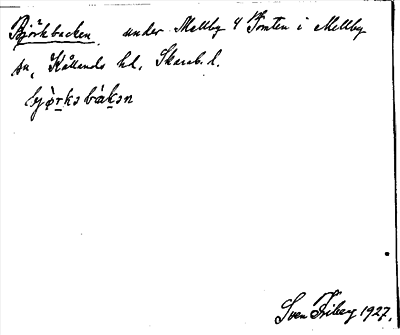 Björkbacken under Mellby 4 Tomten i Mellby
sn, Kållands hd, Skarab. l.
bjø̀rkəbákən
Sven Friberg 1927.